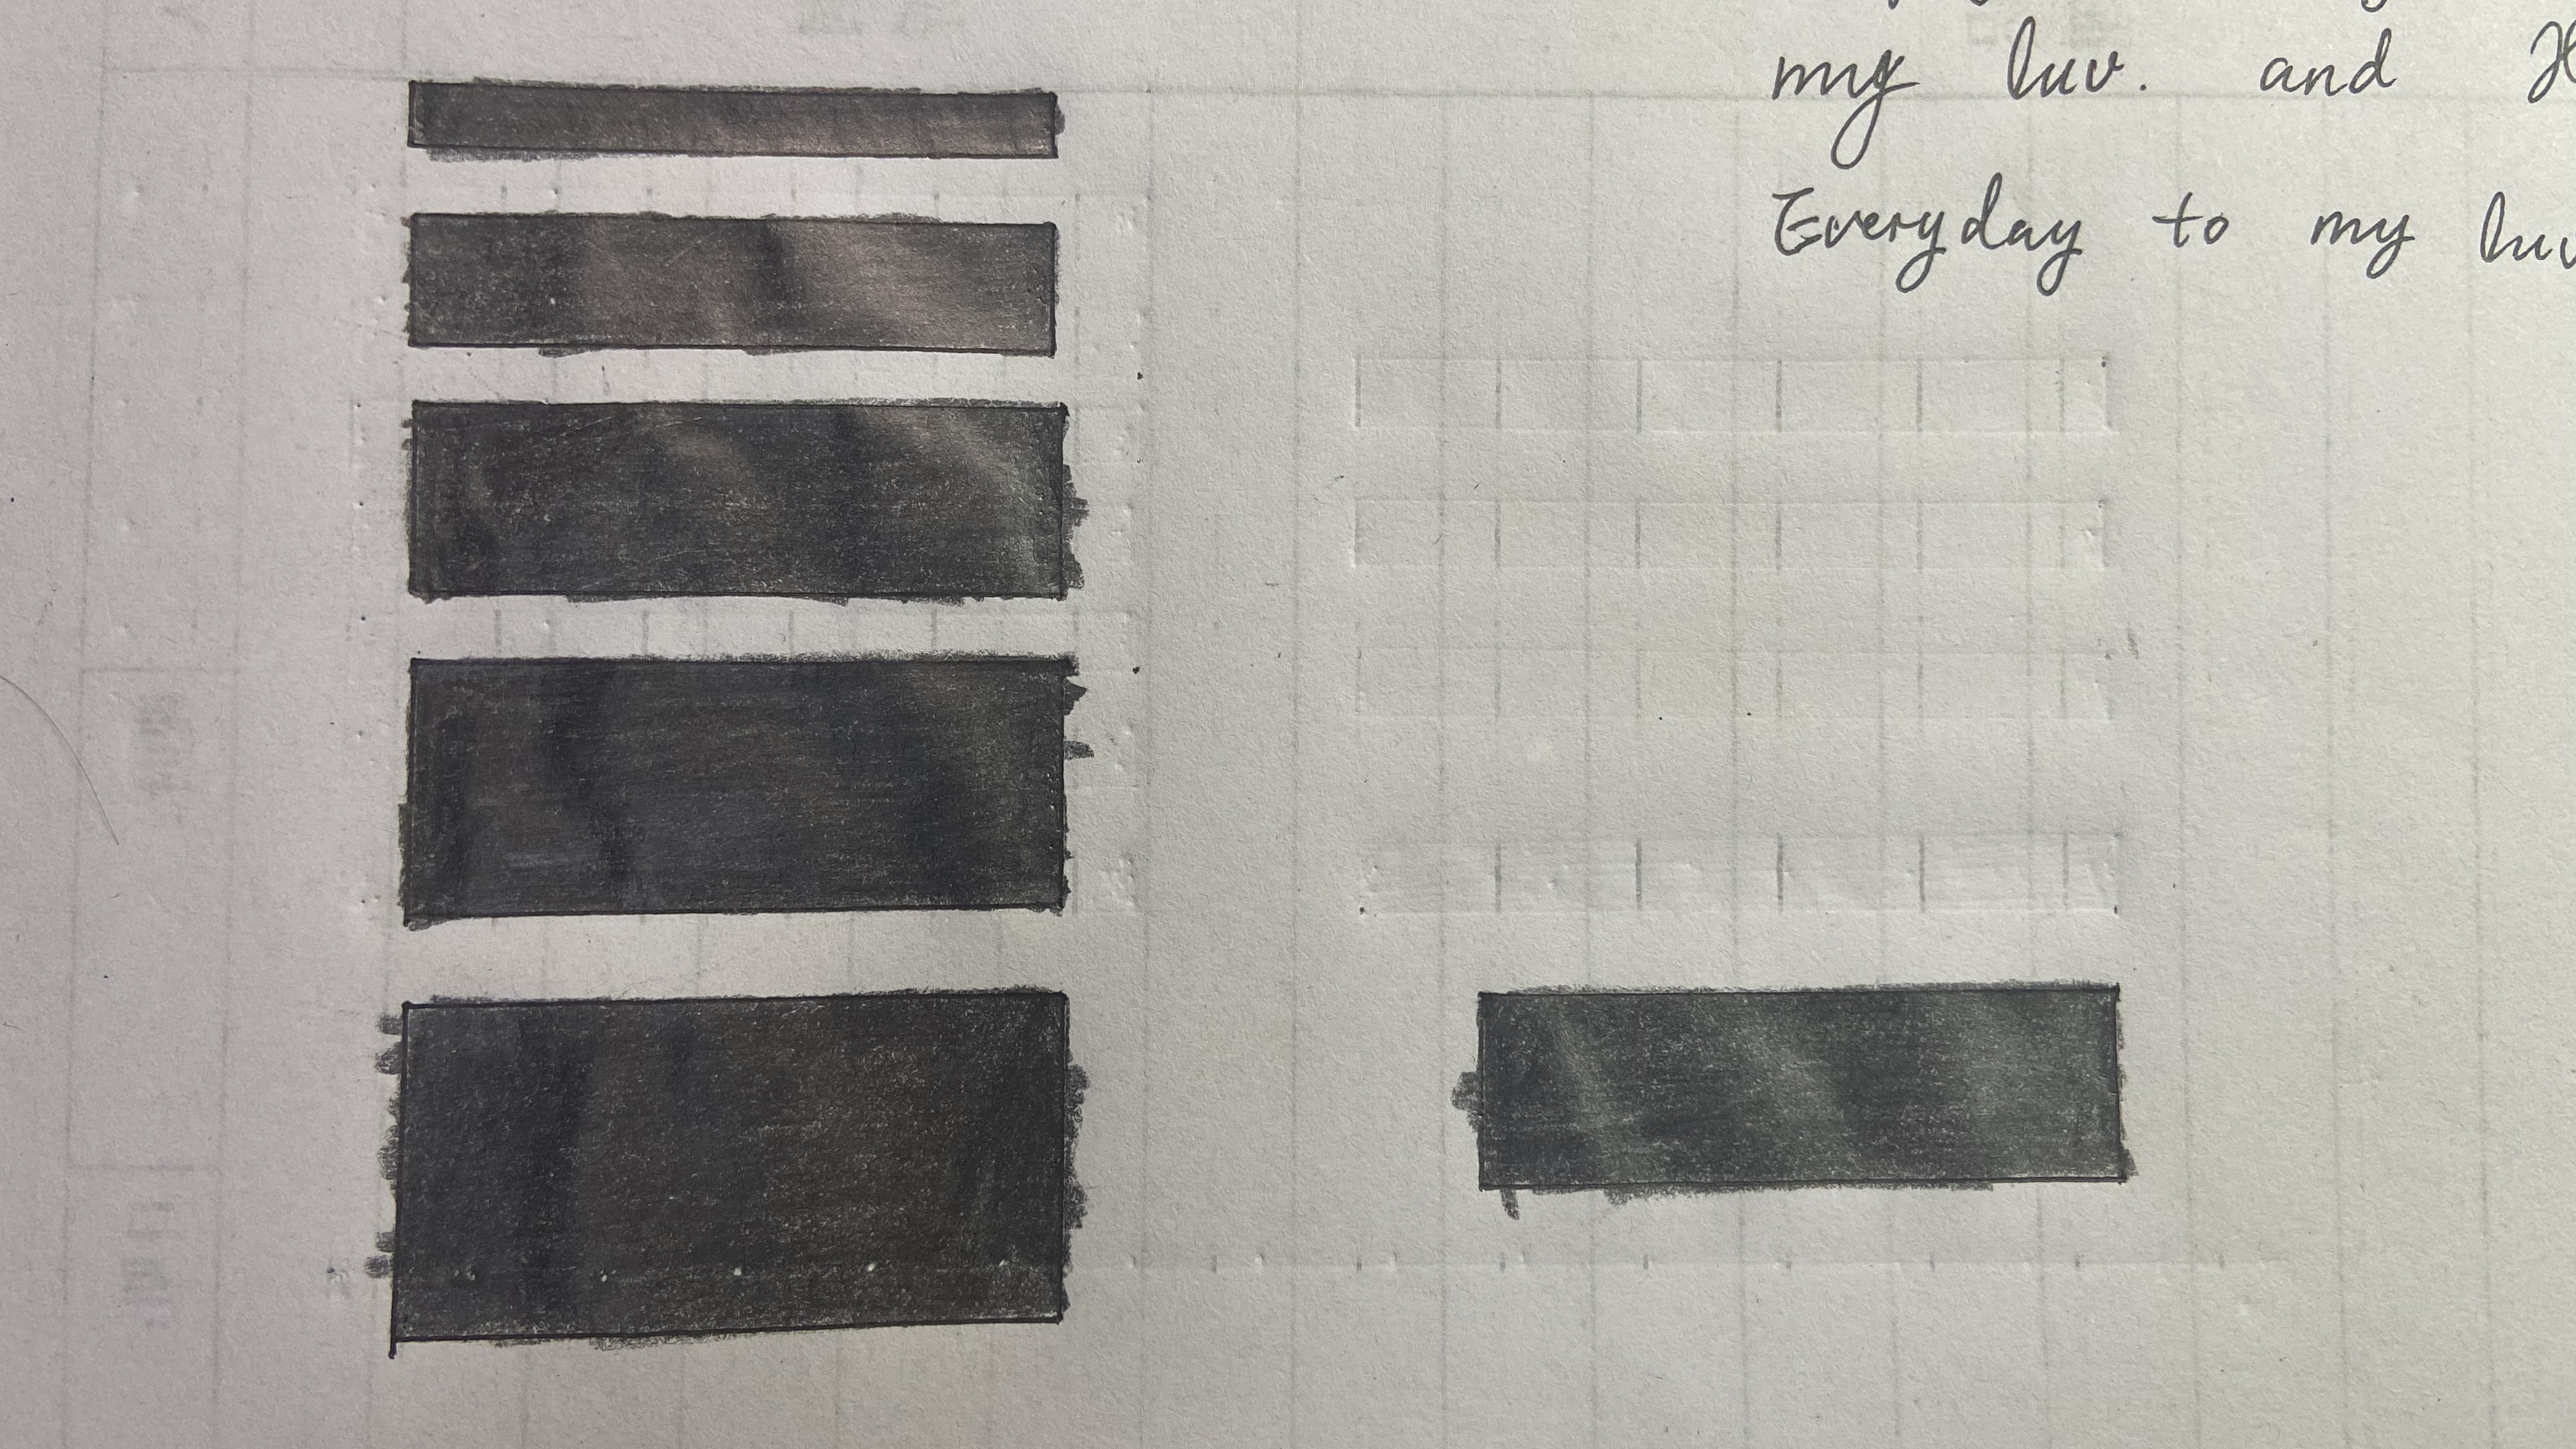 my luv. and
Everyday to my luv